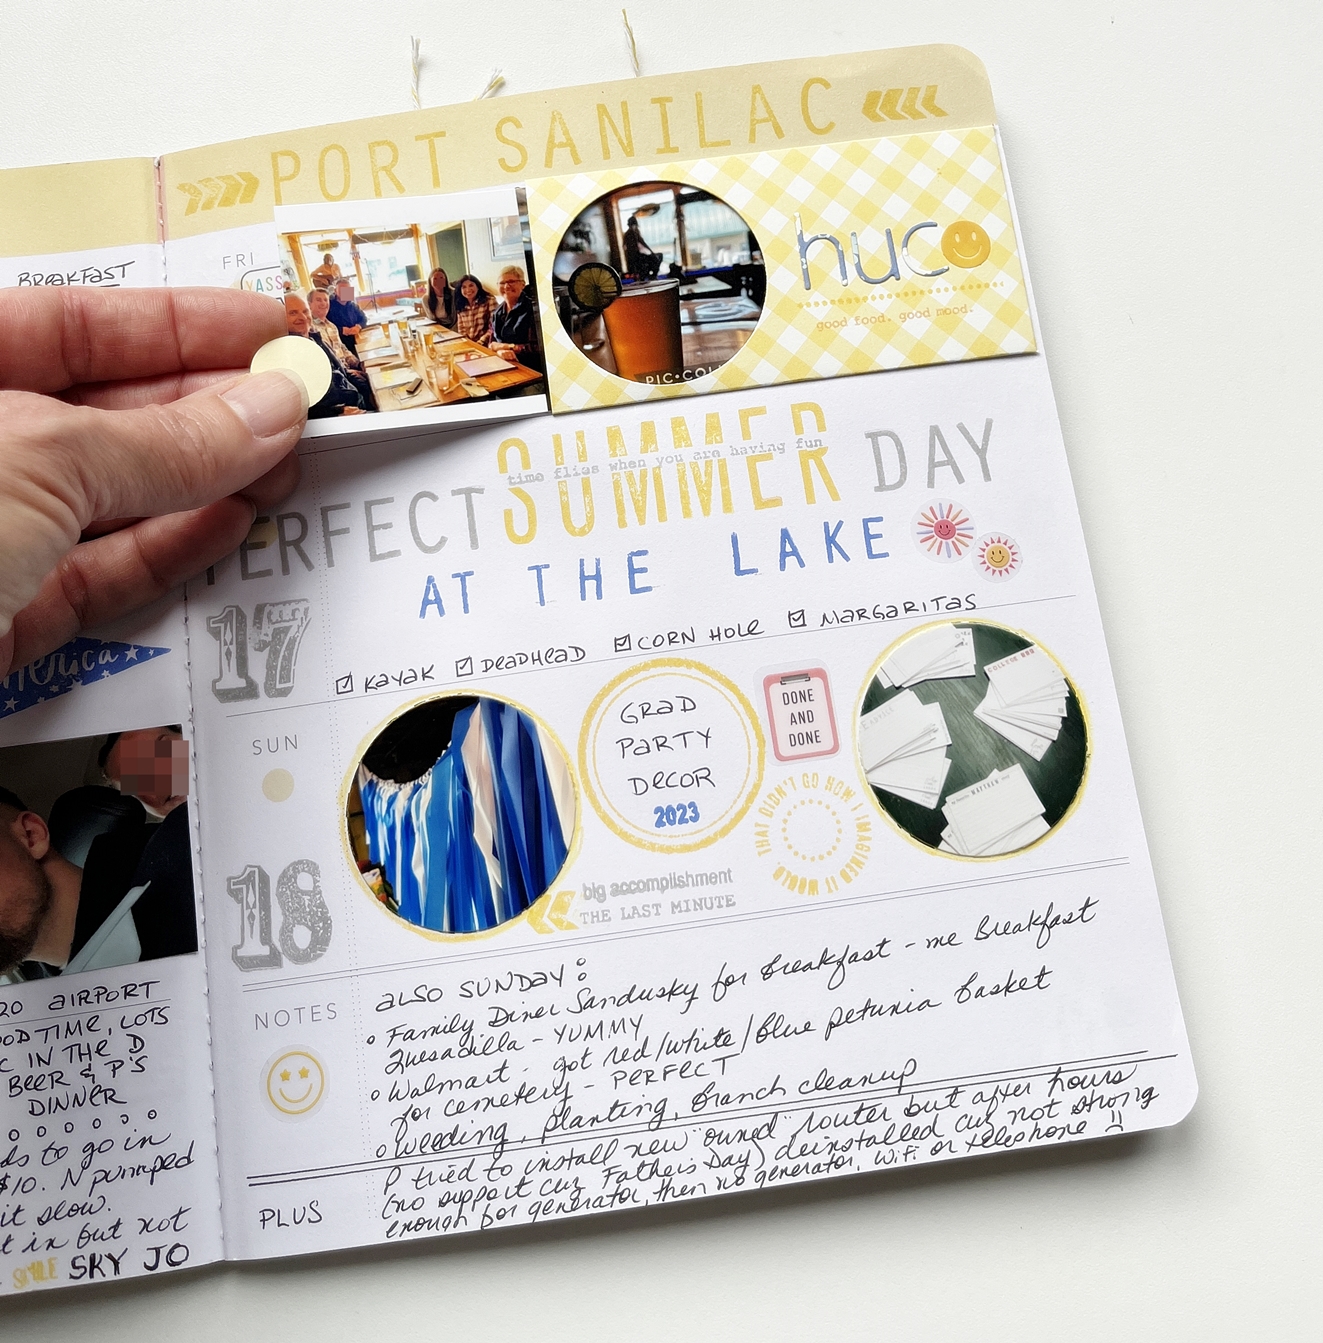 PORT SANILAC
BREAKFAST
FRI
YASS
huco
good food. good mood.
PIC•COL
PERFECT SUMMER DAY
time flies when you are having fun
AT THE LAKE
17
KAYAK DEADHEAD CORN HOLE MARGARITAS
merica
SUN
GRAD
PARTY
DECOR
2023
DONE
AND
DONE
THAT DIDN'T GO HOW I IMAGINED IT WOULD.
COLLEGE
MATTHEW
18
big accomplishment
THE LAST MINUTE
NOTES
ALSO SUNDAY:
Family Diner Sandusky for breakfast - me Breakfast
Quesadilla - YUMMY
Walmart - got red/white/blue petunia basket
for cemetery - PERFECT
Weeding, planting, branch cleanup
PLUS
P tried to install new "owned" router but after hours
(no support cuz Father's Day) deinstalled cuz not strong
enough for generator, then no generator, wifi or telephone
20 AIRPORT
OOD TIME, LOTS
C IN THE D
BEER & P'S
DINNER
ds to go in
$10. N pumped
it slow.
t in but not
SMILE SKY JO